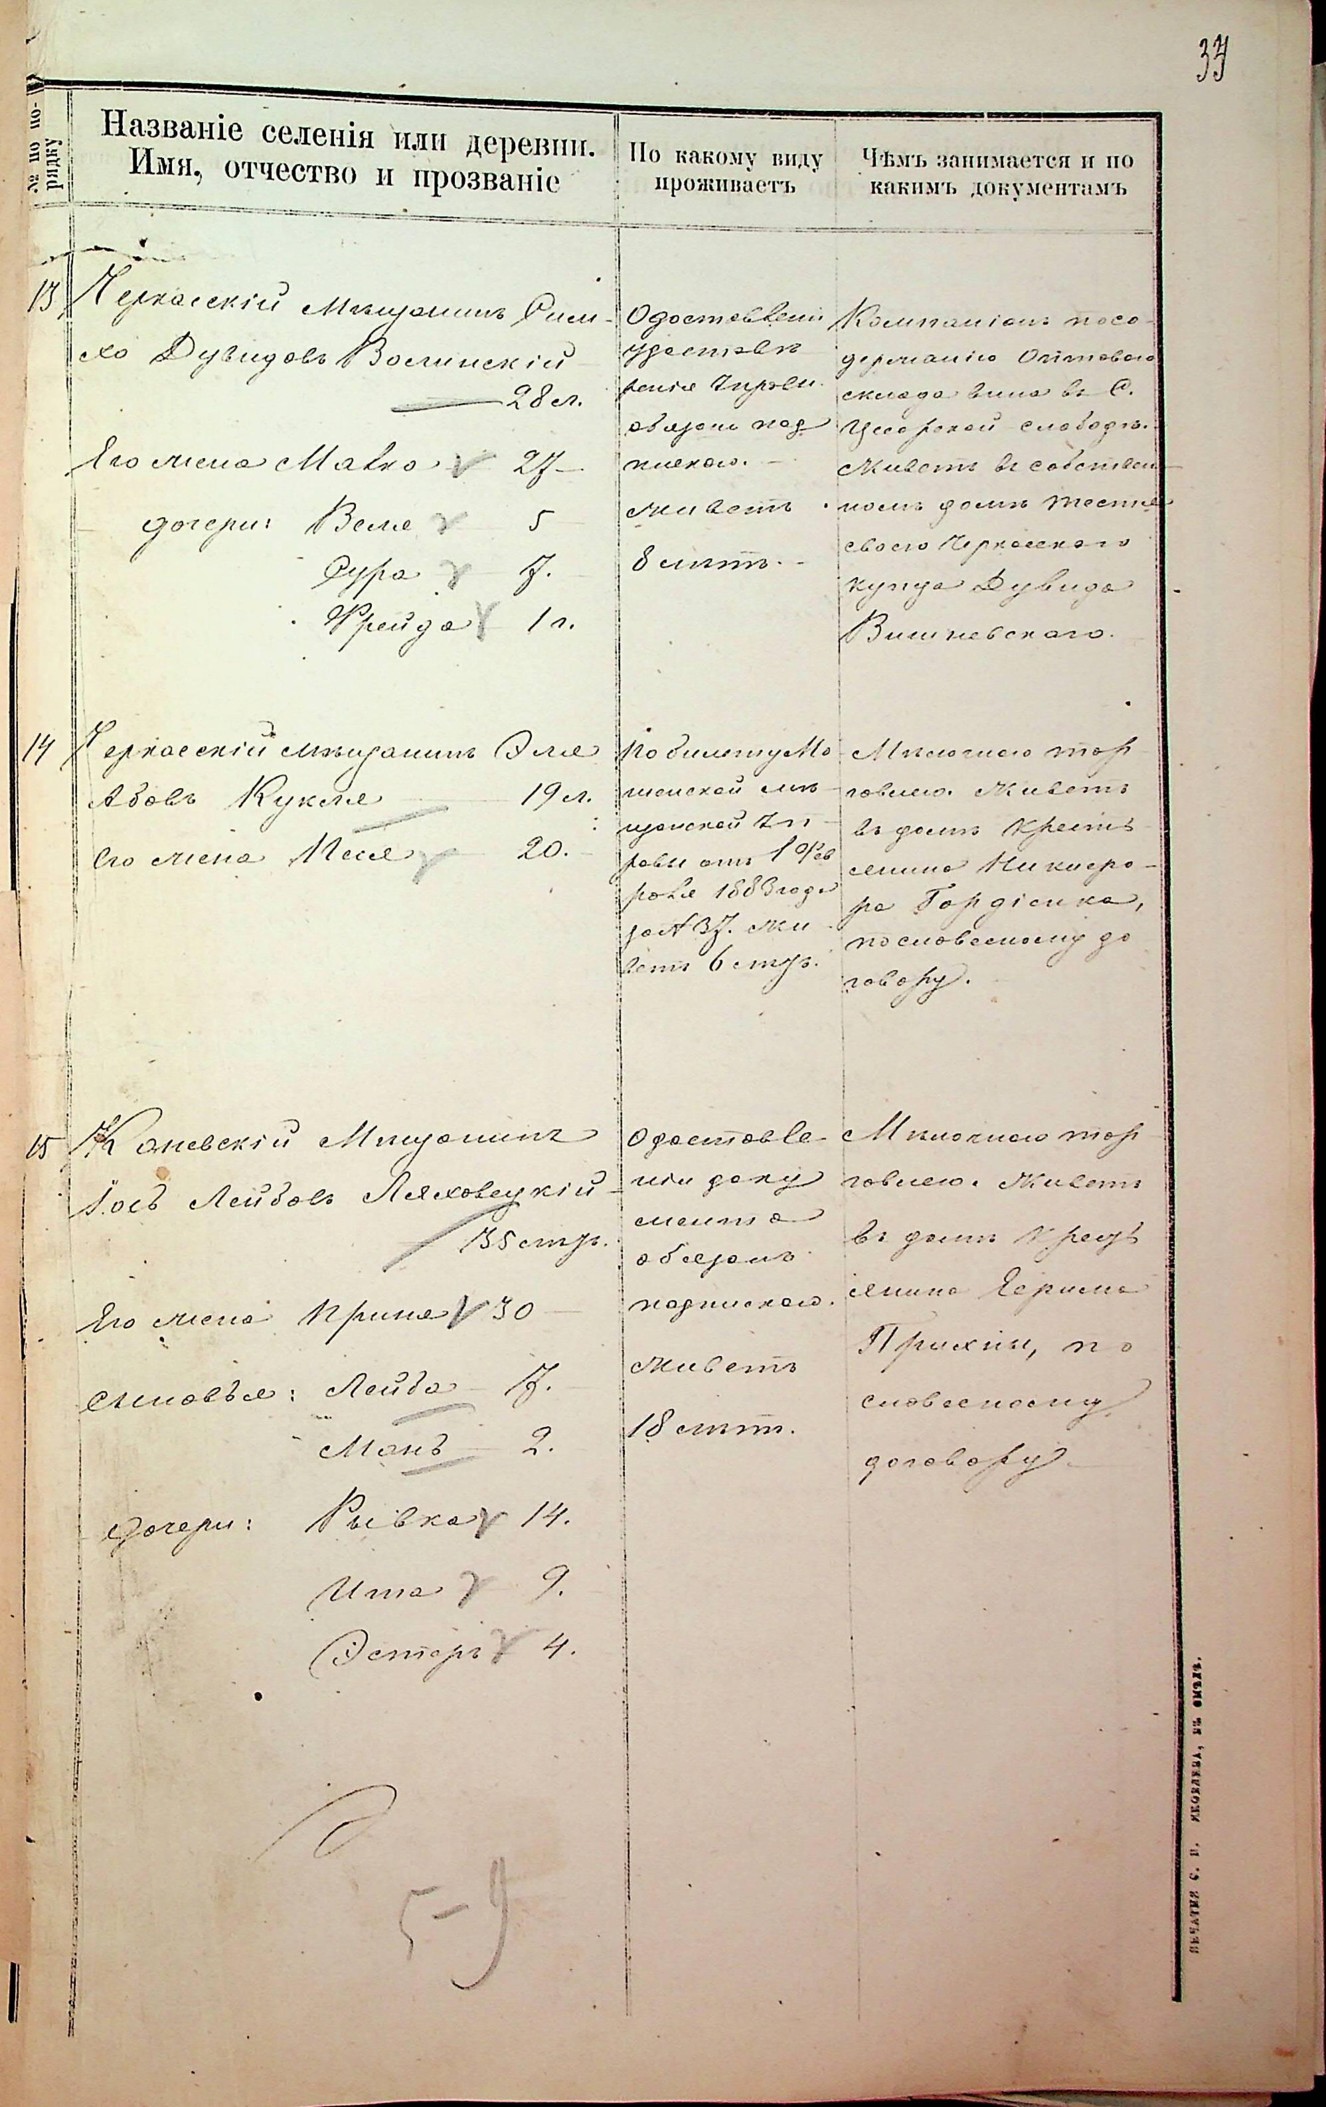 37
№ по по-
рядку
Названіе селенія или деревни.
Имя, отчество и прозваніе
По какому виду
проживаетъ
Чѣмъ занимается и по
какимъ документамъ
13
Черкасскій Мѣщанинъ Сим-
хо Дувидовъ Волинскій
28 л.
Его жена Малко 27
дочери: Веля 5
Сура 7.
Фрейда 1 г.
О доставленіи
удостовѣ
ренія Управы
обязанъ под
пискою.
живетъ
8 лѣтъ.
Компаніонъ по со-
держанію Оптоваго
склада вина въ С.
слободѣ.
Живетъ въ собствен-
номъ домѣ тестя
своего Черкасскаго
купца Дувида
Вишневскаго.
14
Черкасскій мѣщанинъ Эля
Абовъ Кукля 19 л.
Его жена Песя 20.
По билету Мо
шенской мѣ
щанской Уп
равы отъ 1 Фев
раля 1883 года
за № 37. жи
ветъ 6 лѣтъ.
Мѣлочною тор
говлею. Живетъ
въ домѣ крестья
нина Никифо-
ра Гордіенка,
по словесному до
говору.
15
Каневскій Мѣщанинъ
Іось Лейбовъ Ляховецкій
35 лѣтъ.
Его жена Криня 30
сыновья: Лейба 7.
Мань 2.
дочери: Рывка 14.
Ита 9.
Эстеръ 4.
О доставле-
ніи доку
мента
обязанъ
подпискою.
Живетъ
18 лѣтъ.
Мѣлочною тор
говлею. Живетъ
въ домѣ крестья
нина Ефима
по
словесному
договору.
5-9
ПЕЧАТНЯ С. П. ЯКОВЛЕВА, ВЪ СМѢЛѢ.